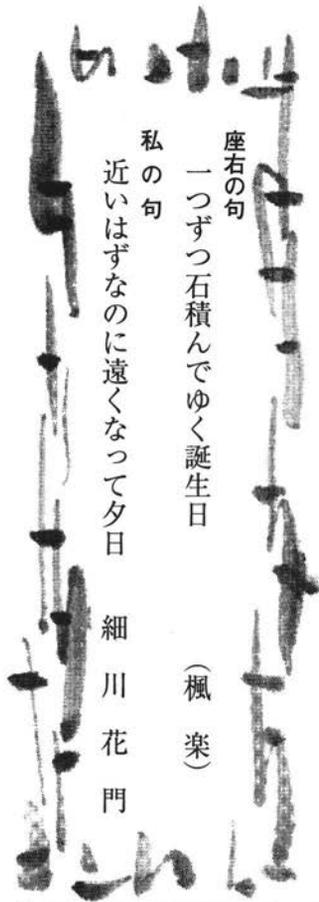 座右の句
一つずつ石積んでゆく誕生日 （楓楽）
私の句
近いはずなのに遠くなって夕日 細川花門